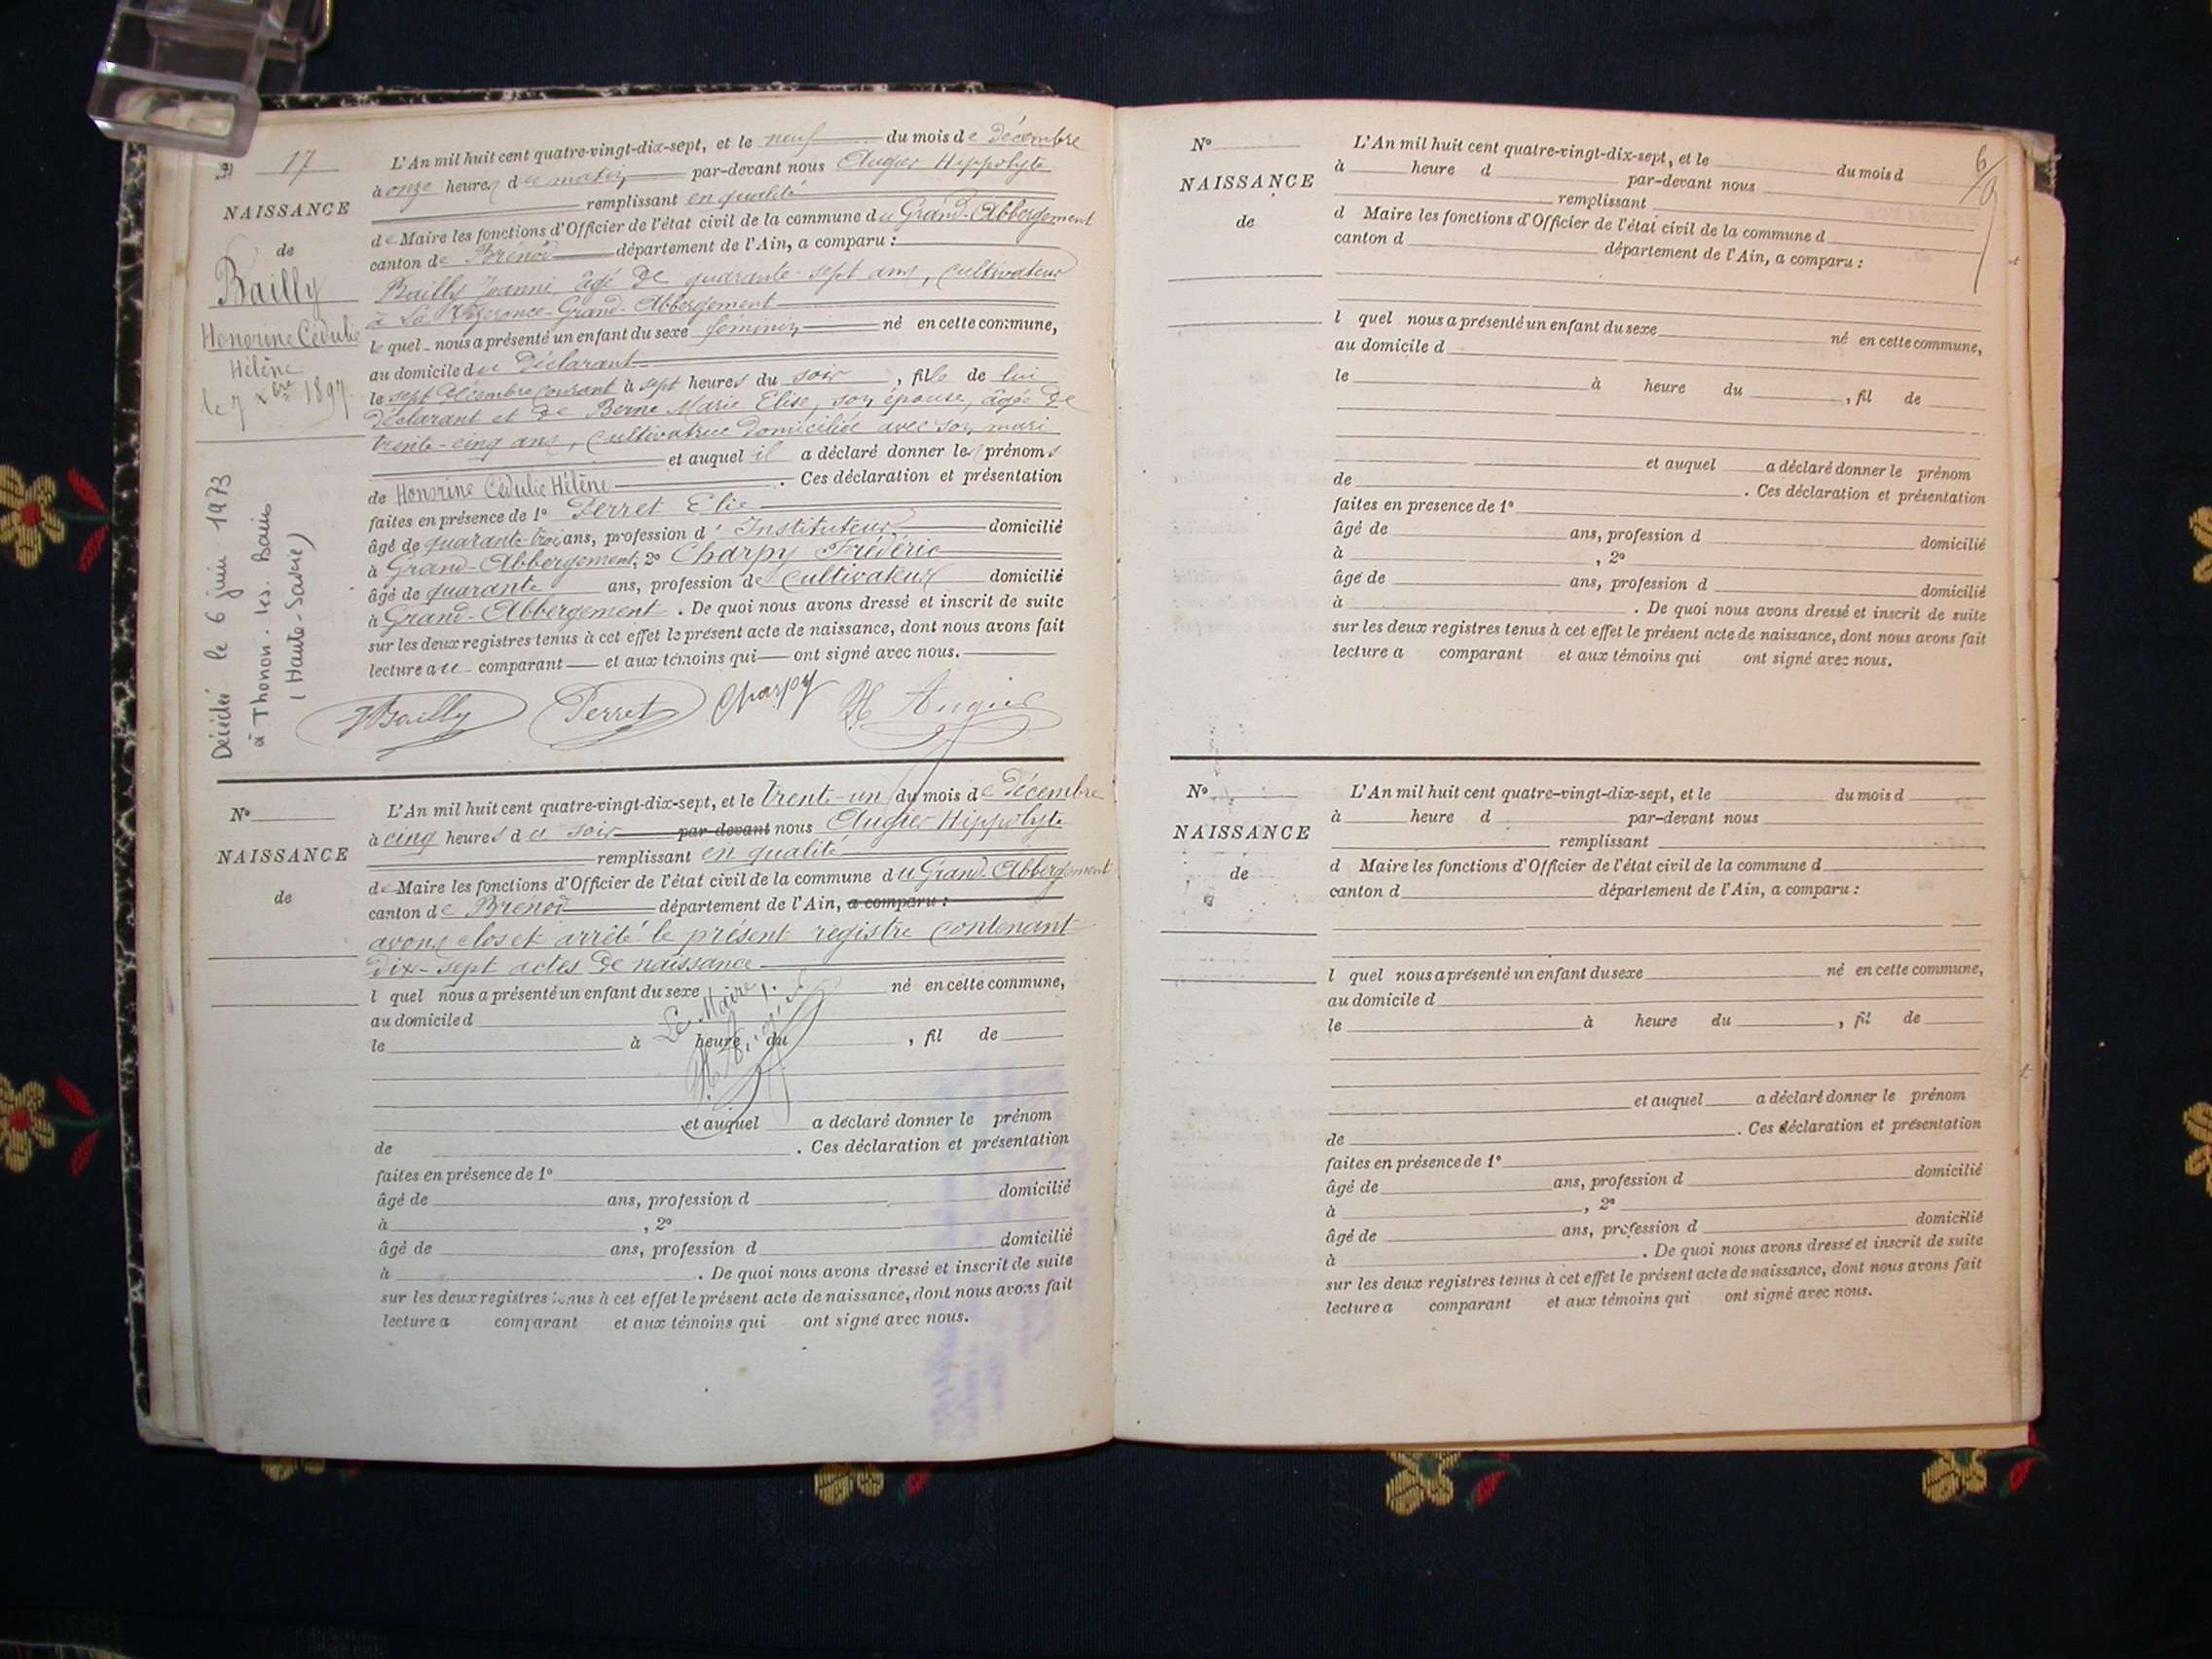 17
NAISSANCE
de
Bailly
Honorine Cédulie
Hélène
le 7 Xbre 1897
Décédée le 6 juin 1973
à Thonon-les-Bains
(Haute-Savoie)
L'An mil huit cent quatre-vingt-dix-sept, et le neuf du mois de Décembre
à onze heures du matin par-devant nous Augier Hippolyte
remplissant en qualité
de Maire les fonctions d'Officier de l'état civil de la commune du Grand-Abbergement
canton de Brénod département de l'Ain, a comparu :
Bailly Joanni, âgé de quarante-sept ans, cultivateur
à La Grand-Abbergement
lequel nous a présenté un enfant du sexe féminin né en cette commune,
au domicile du Déclarant
le sept Décembre courant à sept heures du soir, fille de lui
déclarant et de Berne Marie Elise, son épouse, âgée de
trente-cinq ans, cultivatrice domiciliée avec son mari
et auquel il a déclaré donner les prénoms
de Honorine Cédulie Hélène. Ces déclaration et présentation
faites en présence de 1° Perret Elie
âgé de quarante-trois ans, profession d'Instituteur domicilié
à Grand-Abbergement, 2° Charpy Frédéric
âgé de quarante ans, profession de Cultivateur domicilié
à Grand-Abbergement. De quoi nous avons dressé et inscrit de suite
sur les deux registres tenus à cet effet le présent acte de naissance, dont nous avons fait
lecture au comparant et aux témoins qui ont signé avec nous.
JBailly Perret Charpy H Augier
N°
NAISSANCE
de
L'An mil huit cent quatre-vingt-dix-sept, et le trente-un du mois de Décembre
à cinq heures du soir par-devant nous Augier Hippolyte
remplissant en qualité
de Maire les fonctions d'Officier de l'état civil de la commune du Grand-Abbergement
canton de Brénod département de l'Ain, a comparu :
avons clos et arrêté le présent registre contenant
dix-sept actes de naissance
l quel nous a présenté un enfant du sexe né en cette commune,
Le Maire,
au domicile d
le à heure du , fil de
H. Augier
et auquel a déclaré donner le prénom
de . Ces déclaration et présentation
faites en présence de 1°
âgé de ans, profession d domicilié
à , 2°
âgé de ans, profession d domicilié
à . De quoi nous avons dressé et inscrit de suite
sur les deux registres tenus à cet effet le présent acte de naissance, dont nous avons fait
lecture a comparant et aux témoins qui ont signé avec nous.
6/9
N°
NAISSANCE
de
L'An mil huit cent quatre-vingt-dix-sept, et le du mois d
à heure d par-devant nous
remplissant
d Maire les fonctions d'Officier de l'état civil de la commune d
canton d département de l'Ain, a comparu :
l quel nous a présenté un enfant du sexe né en cette commune,
au domicile d
le à heure du , fil de
et auquel a déclaré donner le prénom
de . Ces déclaration et présentation
faites en presence de 1°
âgé de ans, profession d domicilié
à , 2°
âgé de ans, profession d domicilié
à . De quoi nous avons dressé et inscrit de suite
sur les deux registres tenus à cet effet le présent acte de naissance, dont nous avons fait
lecture a comparant et aux témoins qui ont signé avec nous.
N°
NAISSANCE
de
L'An mil huit cent quatre-vingt-dix-sept, et le du mois d
à heure d par-devant nous
remplissant
d Maire les fonctions d'Officier de l'état civil de la commune d
canton d département de l'Ain, a comparu :
l quel nous a présenté un enfant du sexe né en cette commune,
au domicile d
le à heure du , fil de
et auquel a déclaré donner le prénom
de . Ces déclaration et présentation
faites en présence de 1°
âgé de ans, profession d domicilié
à , 2°
âgé de ans, profession d domicilié
à . De quoi nous avons dressé et inscrit de suite
sur les deux registres tenus à cet effet le présent acte de naissance, dont nous avons fait
lecture a comparant et aux témoins qui ont signé avec nous.